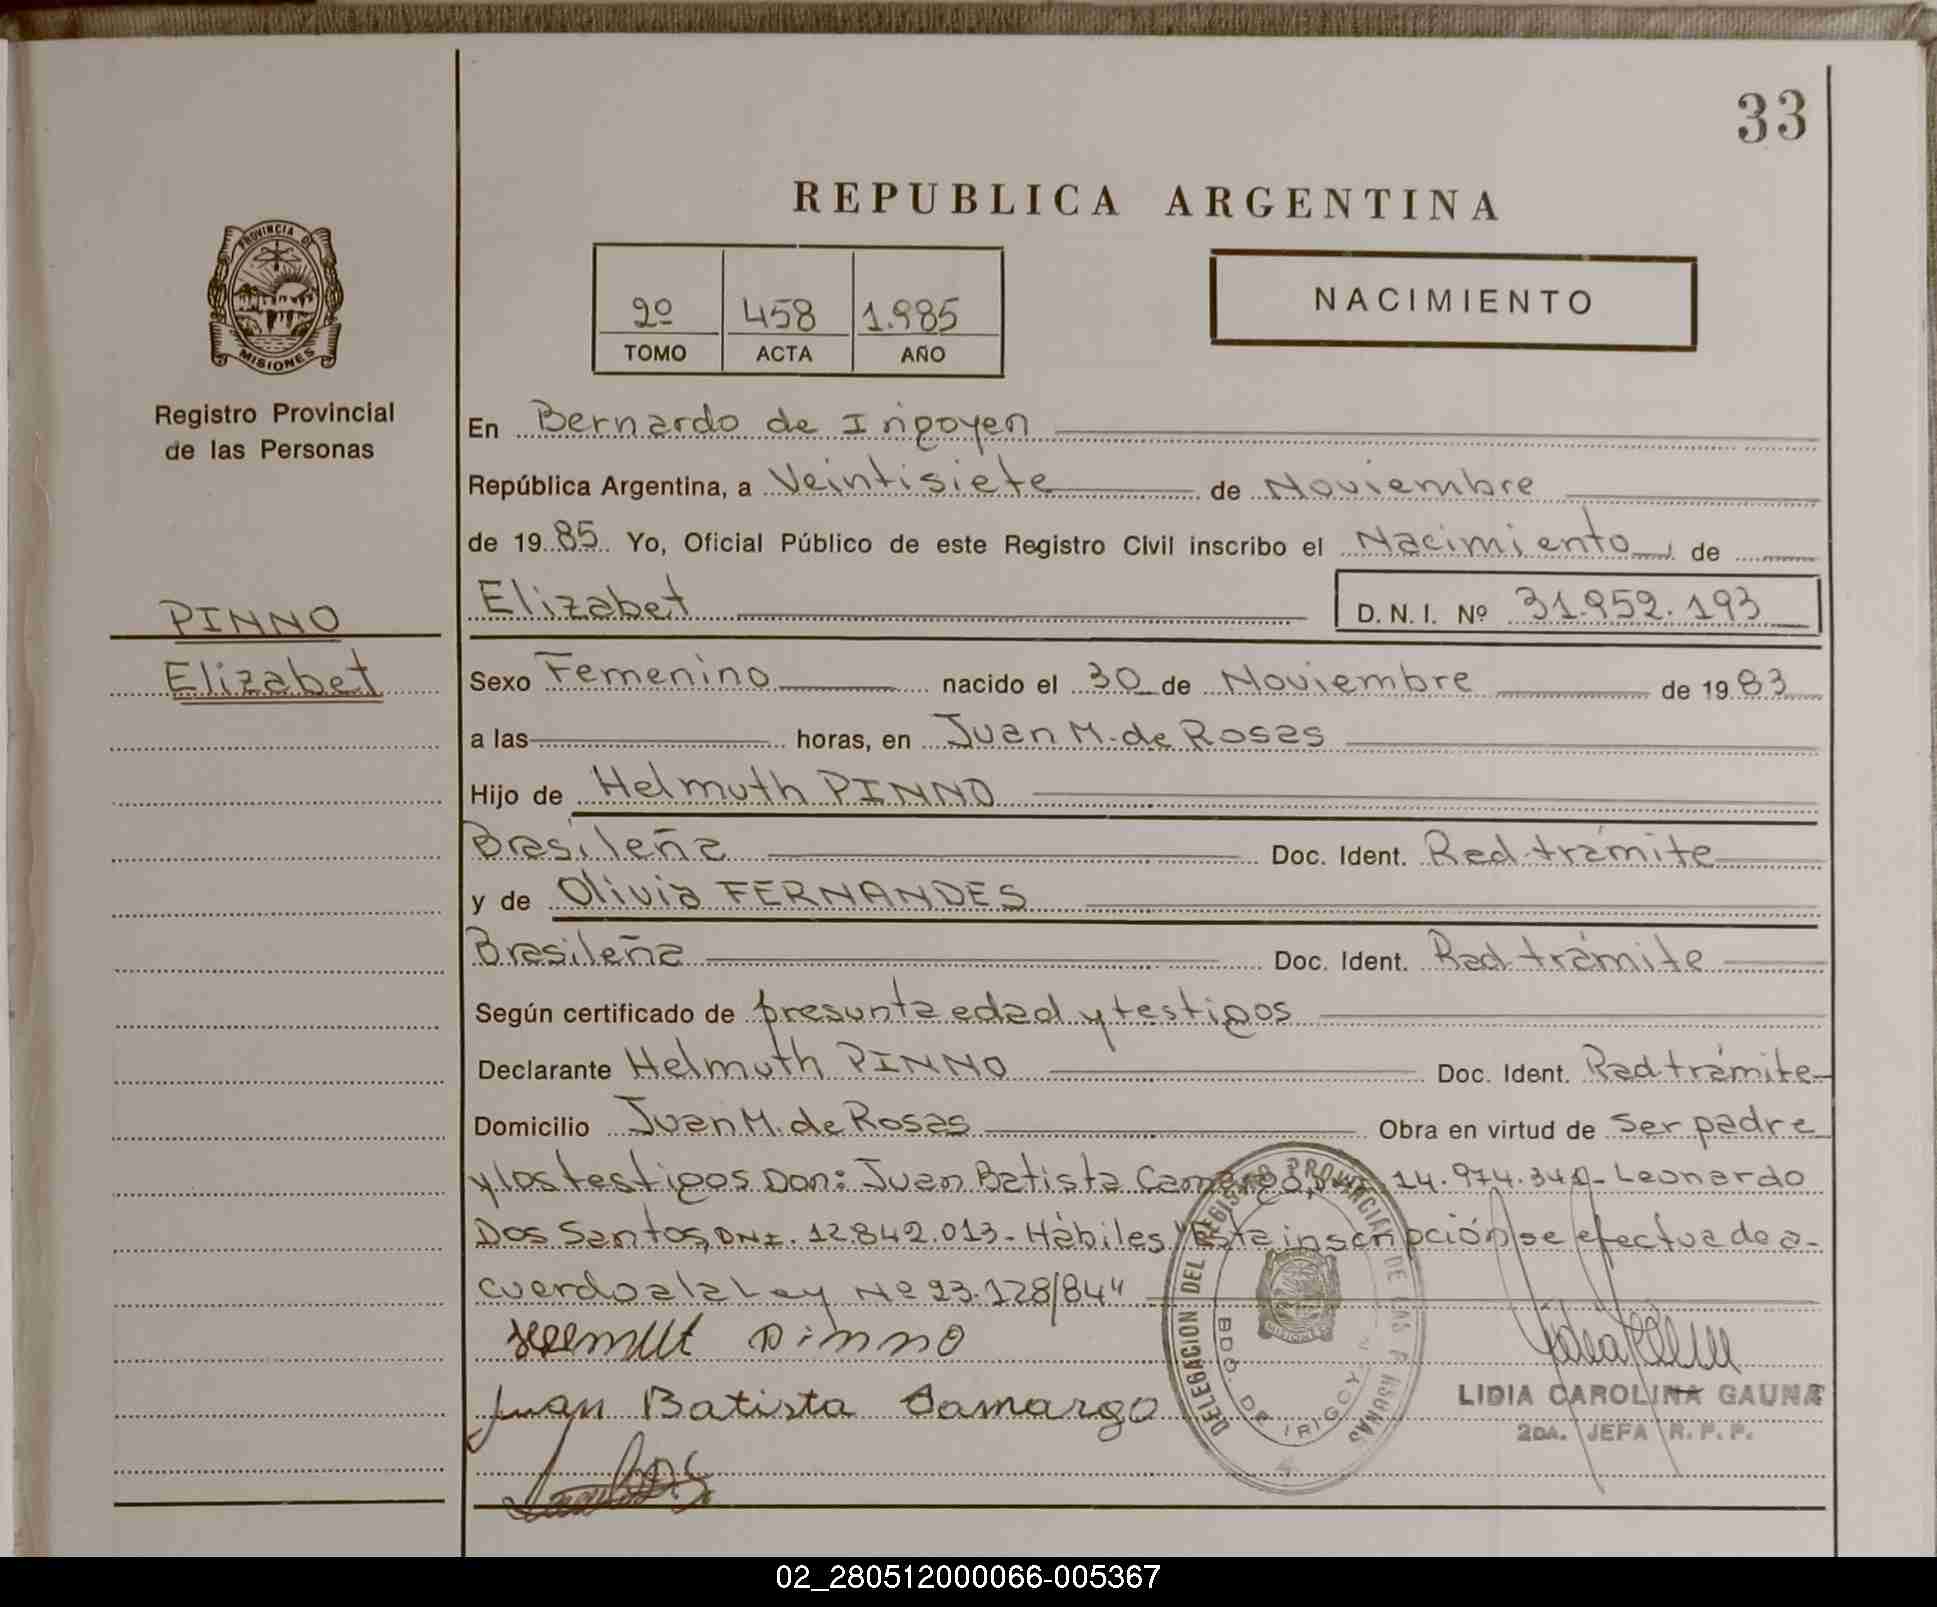 33
REPUBLICA ARGENTINA
PROVINCIA DE
MISIONES
Registro Provincial
de las Personas
2º 458 1.985
TOMO ACTA AÑO
NACIMIENTO
En Bernardo de Irigoyen
República Argentina, a Veintisiete de Noviembre
de 1985 Yo, Oficial Público de este Registro Civil inscribo el Nacimiento, de
PINNO
Elizabet
Elizabet D. N. I. Nº 31.952.193
Sexo Femenino nacido el 30 de Noviembre de 1983
a las horas, en Juan M. de Rosas
Hijo de Helmuth PINNO
Brasileña Doc. Ident. Rad. trámite
y de Olivia FERNANDES
Brasileña Doc. Ident. Rad. trámite
Según certificado de presunta edad y testigos
Declarante Helmuth PINNO Doc. Ident. Rad. trámite
Domicilio Juan M. de Rosas Obra en virtud de ser padre
y los testigos Don: Juan Batista Camargo, 14.974.341- Leonardo
Dos Santos, DNI. 12.842.013- Hábiles "Esta inscripción se efectua de a-
cuerdo a la Ley Nº 23.128/84"
Pinno
Juan Batista Camargo
DELEGACION DEL REGISTRO PROVINCIAL DE LAS PERSONAS
BDO. DE IRIGOYEN
MISIONES
LIDIA CAROLINA GAUNA
2DA. JEFA R. P. P.
02_280512000066-005367